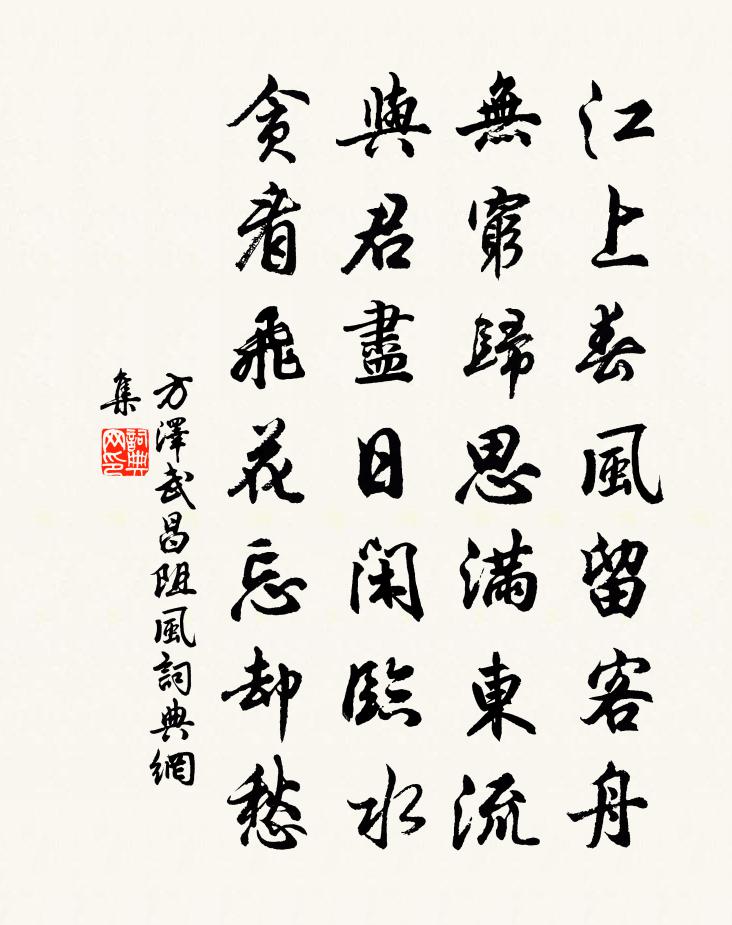 江上春風留客舟
無窮歸思滿東流
與君盡日閑臨水
貪看飛花忘却愁
方澤武昌阻風詞典網
集
詞典
网印